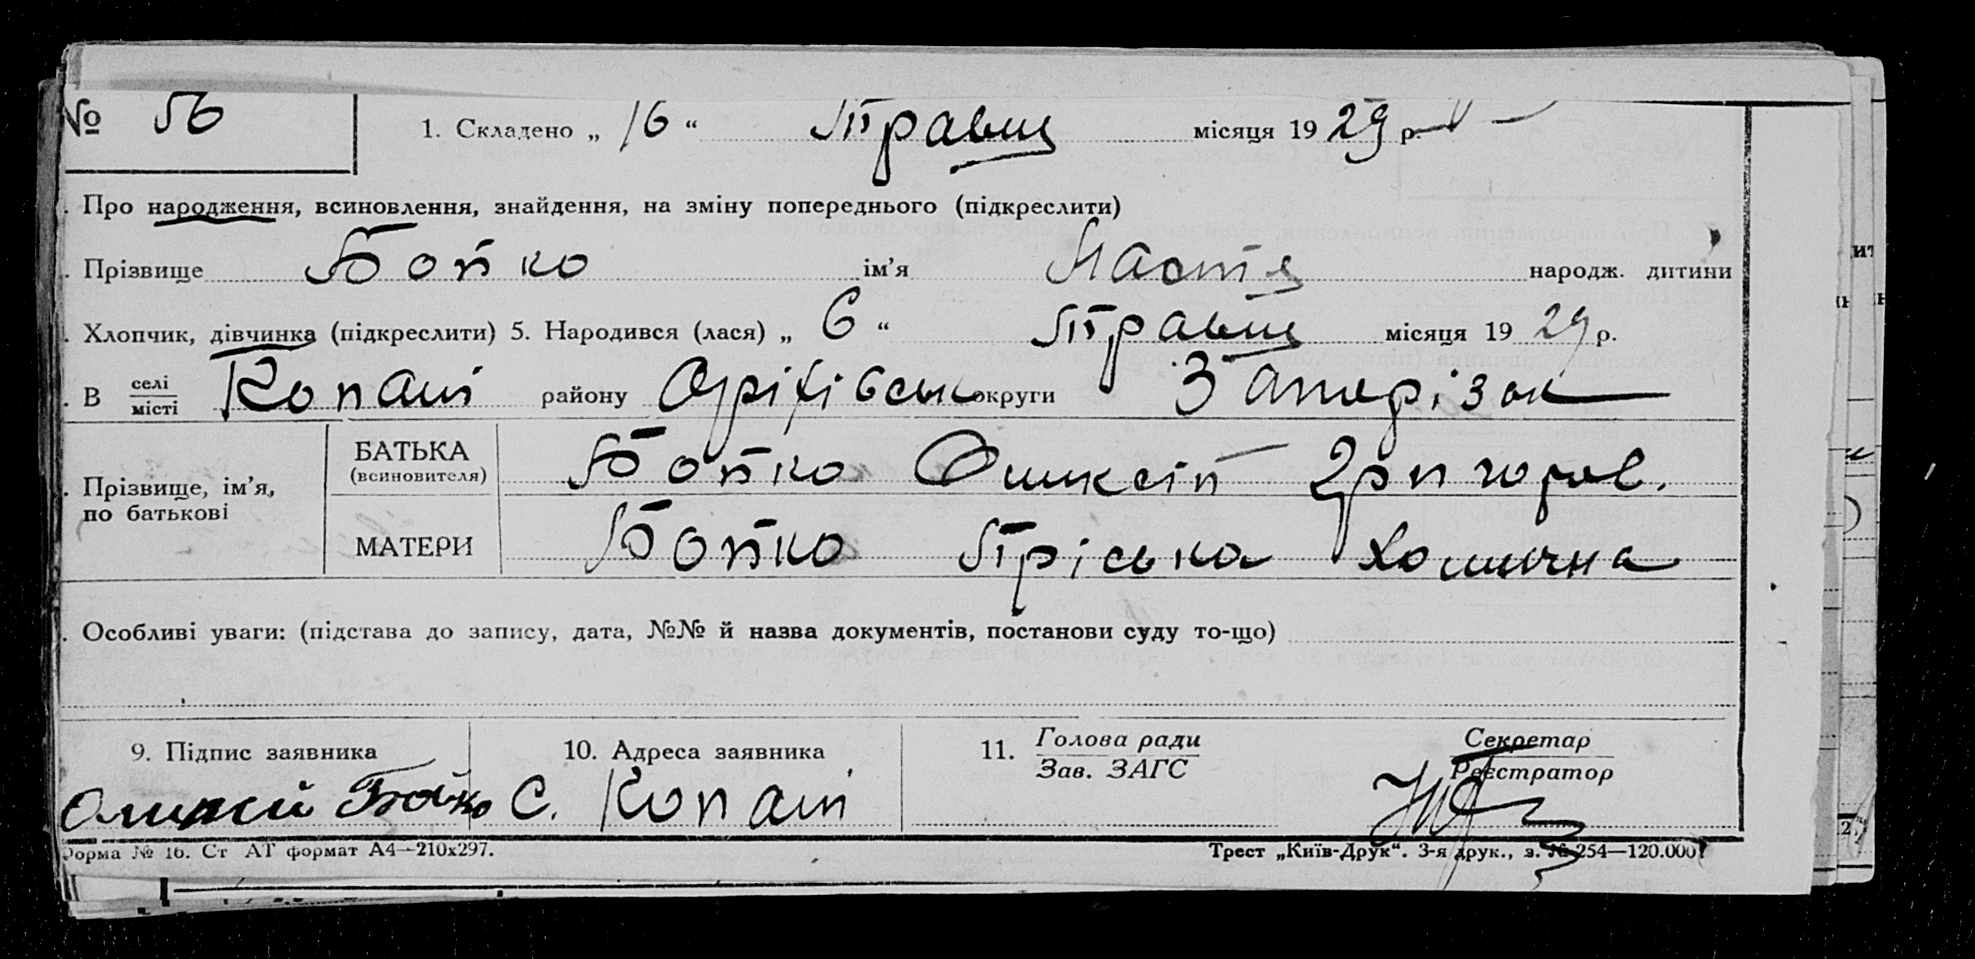 № 56
1. Складено „ 16 “ Травня місяця 1929 р.
. Про народження, всиновлення, знайдення, на зміну попереднього (підкреслити)
. Прізвище Бойко ім’я Настя народж. дитини
. Хлопчик, дівчинка (підкреслити) 5. Народився (лася) „ 6 “ Травня місяця 1929 р.
. В селі місті Копані району Оріхівськ округи Запорізьк
. Прізвище, ім’я, по батькові
БАТЬКА (всиновителя) Бойко Оликсій Григоров.
МАТЕРИ Бойко Пріська Хомична
. Особливі уваги: (підстава до запису, дата, №№ й назва документів, постанови суду то-що)
9. Підпис заявника
Оликсій Бойко
10. Адреса заявника
С. Копані
11. Голова ради
Зав. ЗАГС
Секретар
Реєстратор
Форма № 16. Ст АТ формат А4—210х297.
Трест „Київ-Друк“. 3-я друк., з. № 254—120.000